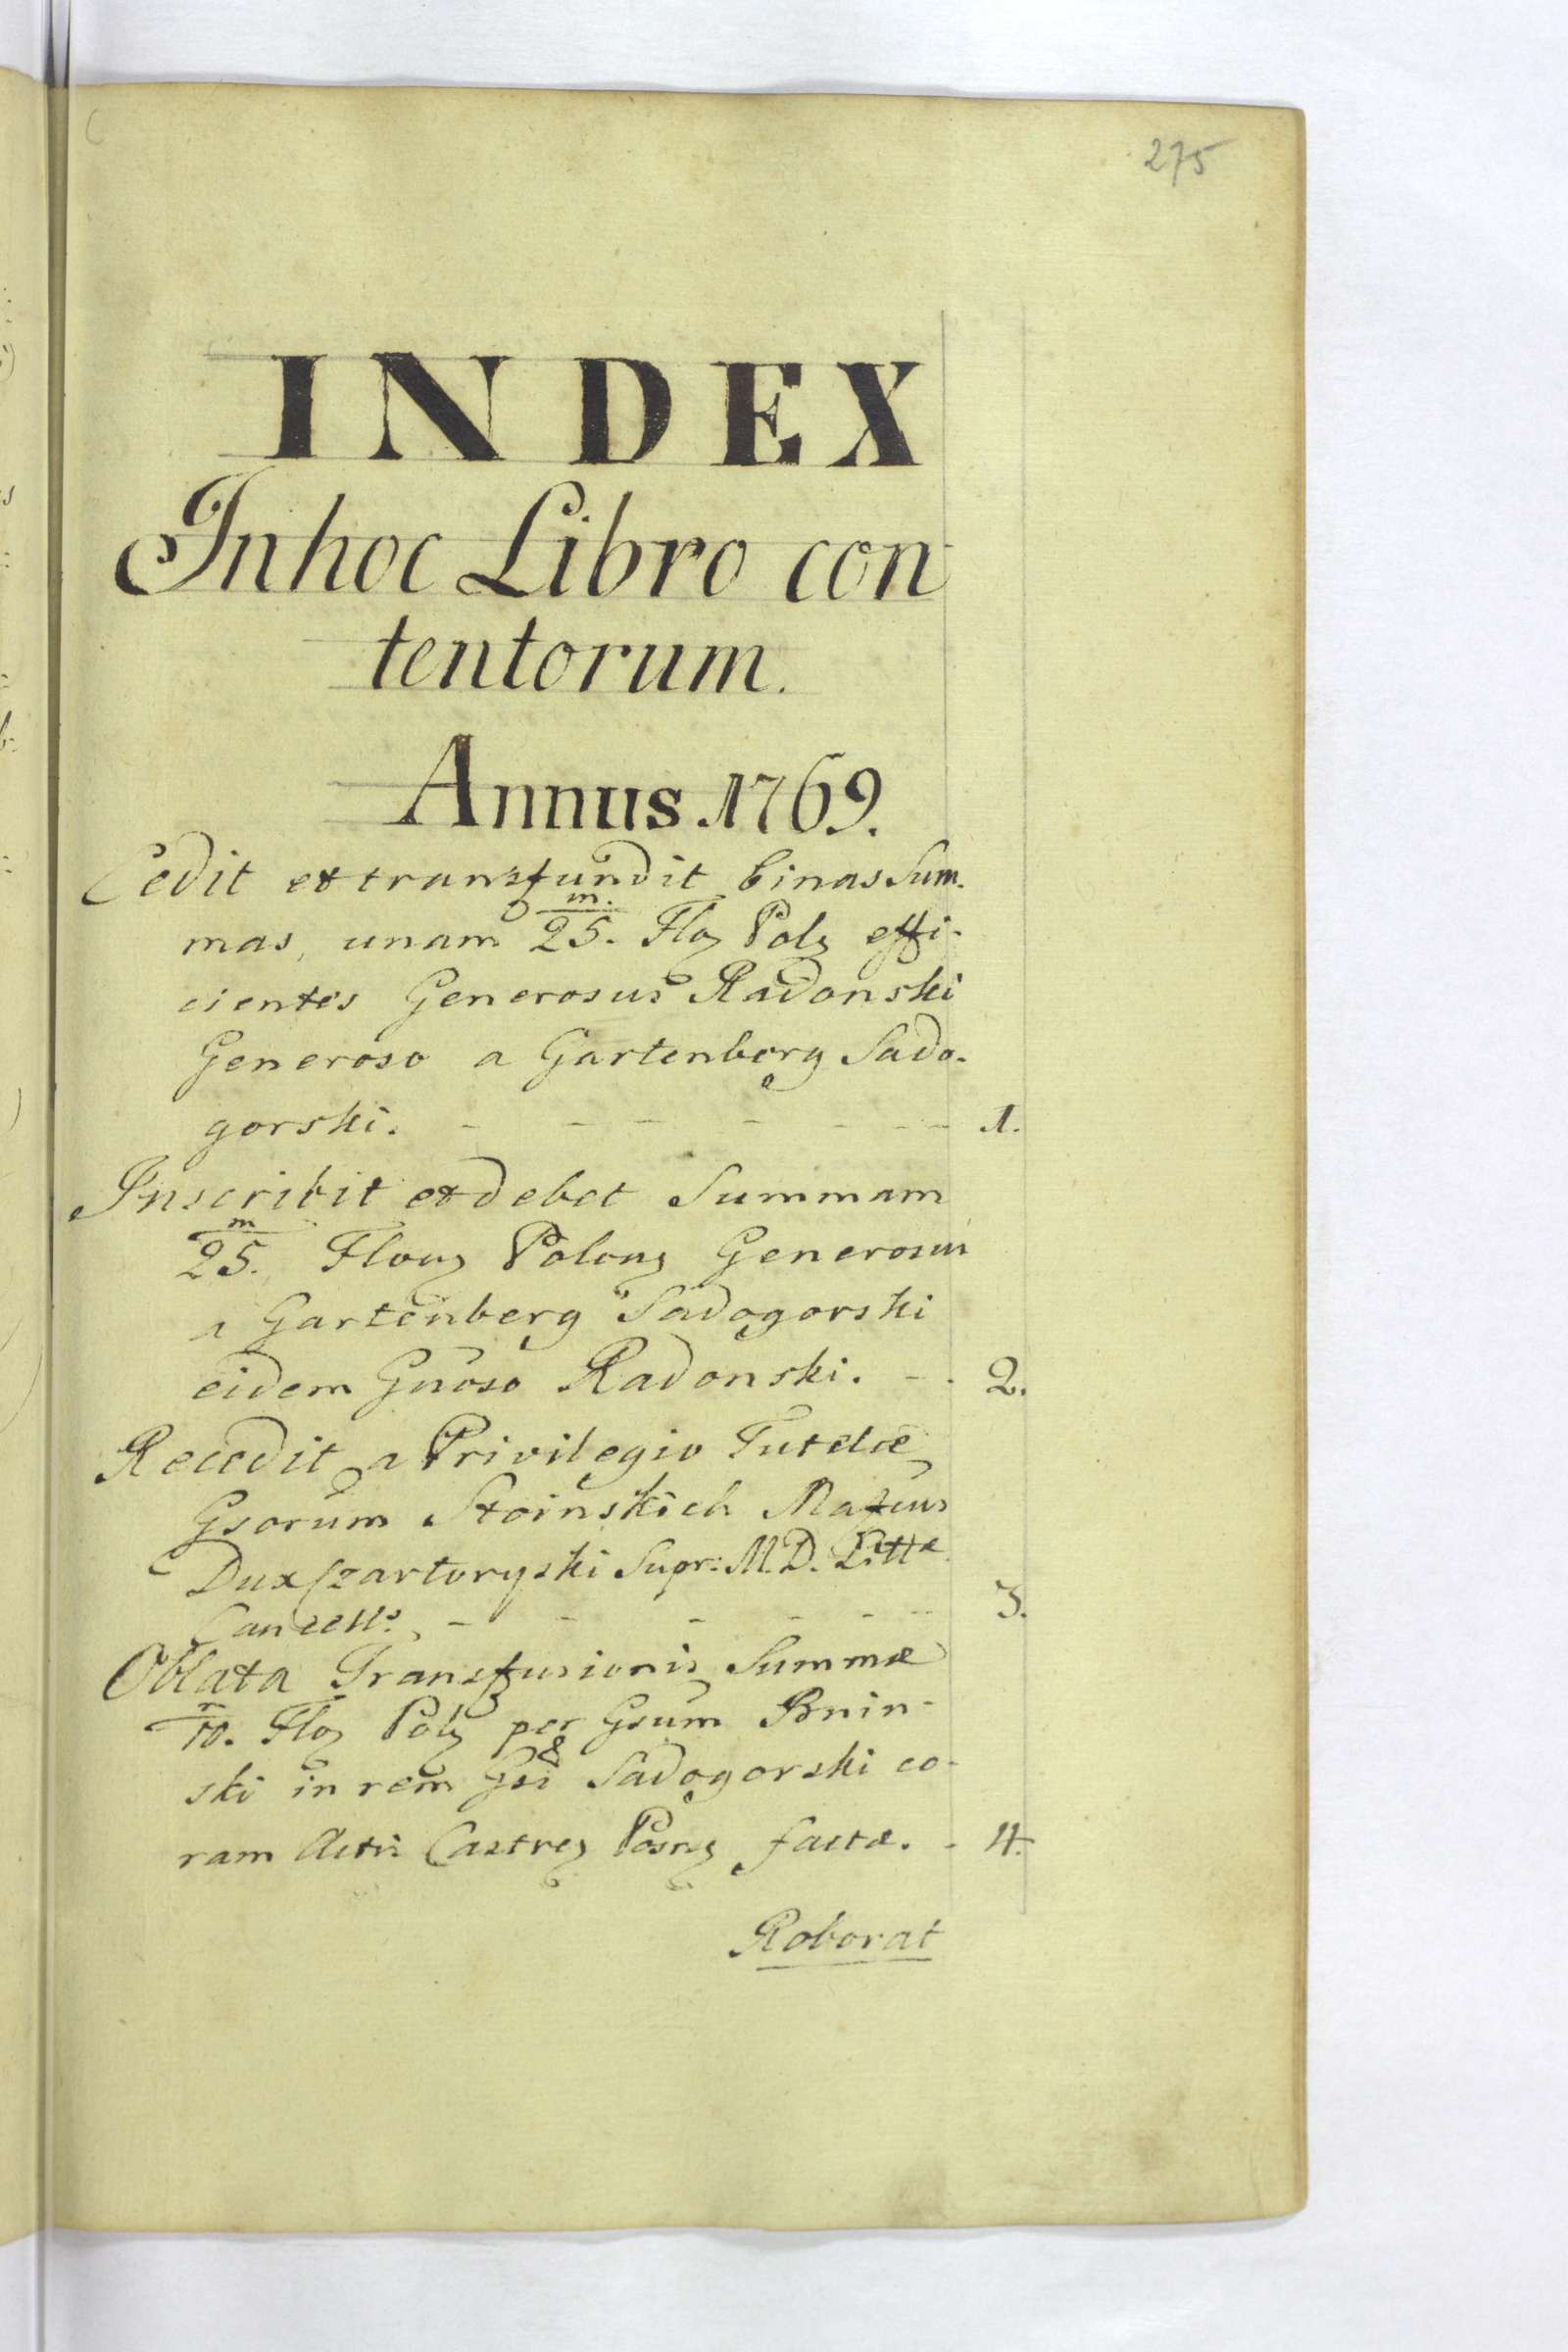 275
INDEX
In hoc Libro con
tentorum.
Annus 1769.
Cedit et transfundit binas Sum-
mas, unam 25.m Floʒ Polʒ effi-
cientes Generosus Radonski
Generoso a Gartenberg Sado-
gorski. - - - - - - - 1.
Inscribit et debet Summam
25.m Florʒ Polonʒ Generosus
a Gartenberg Sadogorski
eidem Gnoso Radonski. - - 2.
Recedit a Privilegio Tutelæ
Gsorum Stoinskich
Dux Czartoryski Supr: M. D. Littæ
Cancell: - - - - - - 3.
Oblata Transfusionis Summæ
10.m Floʒ Polʒ per Gsum Bnin-
ski in rem Gsi Sadogorski co-
ram Actis Castreʒ Posnʒ factæ. - 4.
Roborat